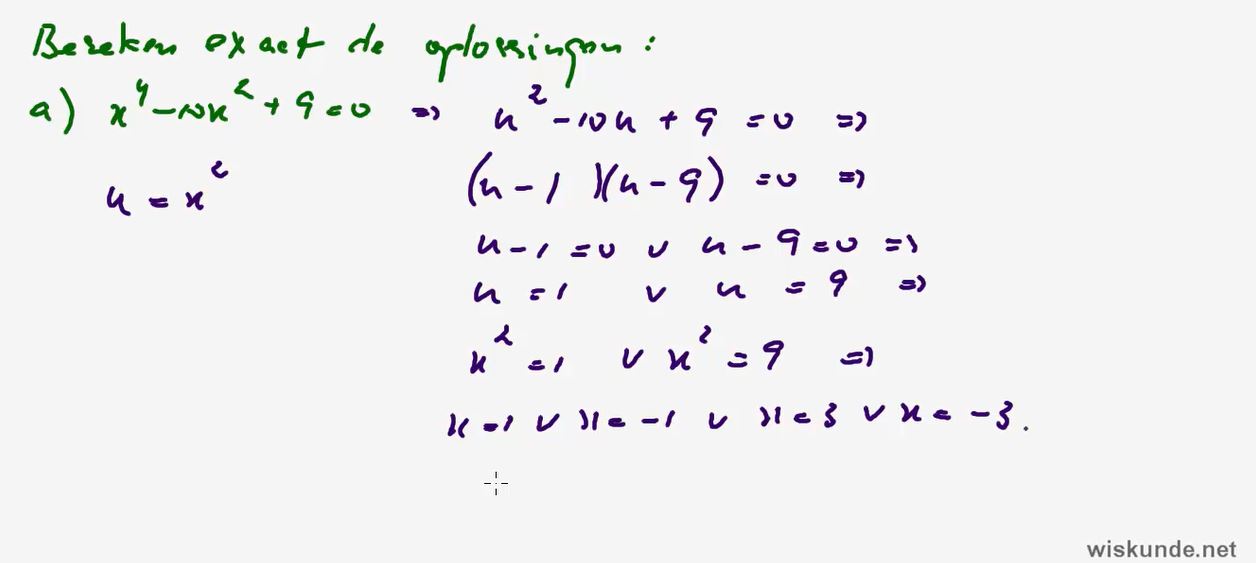 Bereken exact de oplossingen:
a) x⁴ - 10x² + 9 = 0 => u² - 10u + 9 = 0 =>
u = x²
(u - 1)(u - 9) = 0 =>
u - 1 = 0 ∨ u - 9 = 0 =>
u = 1 ∨ u = 9 =>
x² = 1 ∨ x² = 9 =>
x = 1 ∨ x = -1 ∨ x = 3 ∨ x = -3.
wiskunde.net